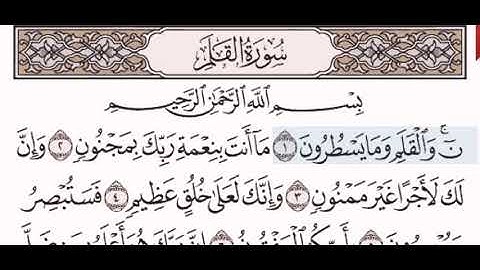 سُورَةُ القَلَمِ
بِسْمِ اللَّهِ الرَّحْمَٰنِ الرَّحِيمِ
نٓۚ وَالْقَلَمِ وَمَا يَسْطُرُونَ ١ مَا أَنتَ بِنِعْمَةِ رَبِّكَ بِمَجْنُونٍ ٢ وَإِنَّ
لَكَ لَأَجْرًا غَيْرَ مَمْنُونٍ ٣ وَإِنَّكَ لَعَلَىٰ خُلُقٍ عَظِيمٍ ٤ فَسَتُبْصِرُ